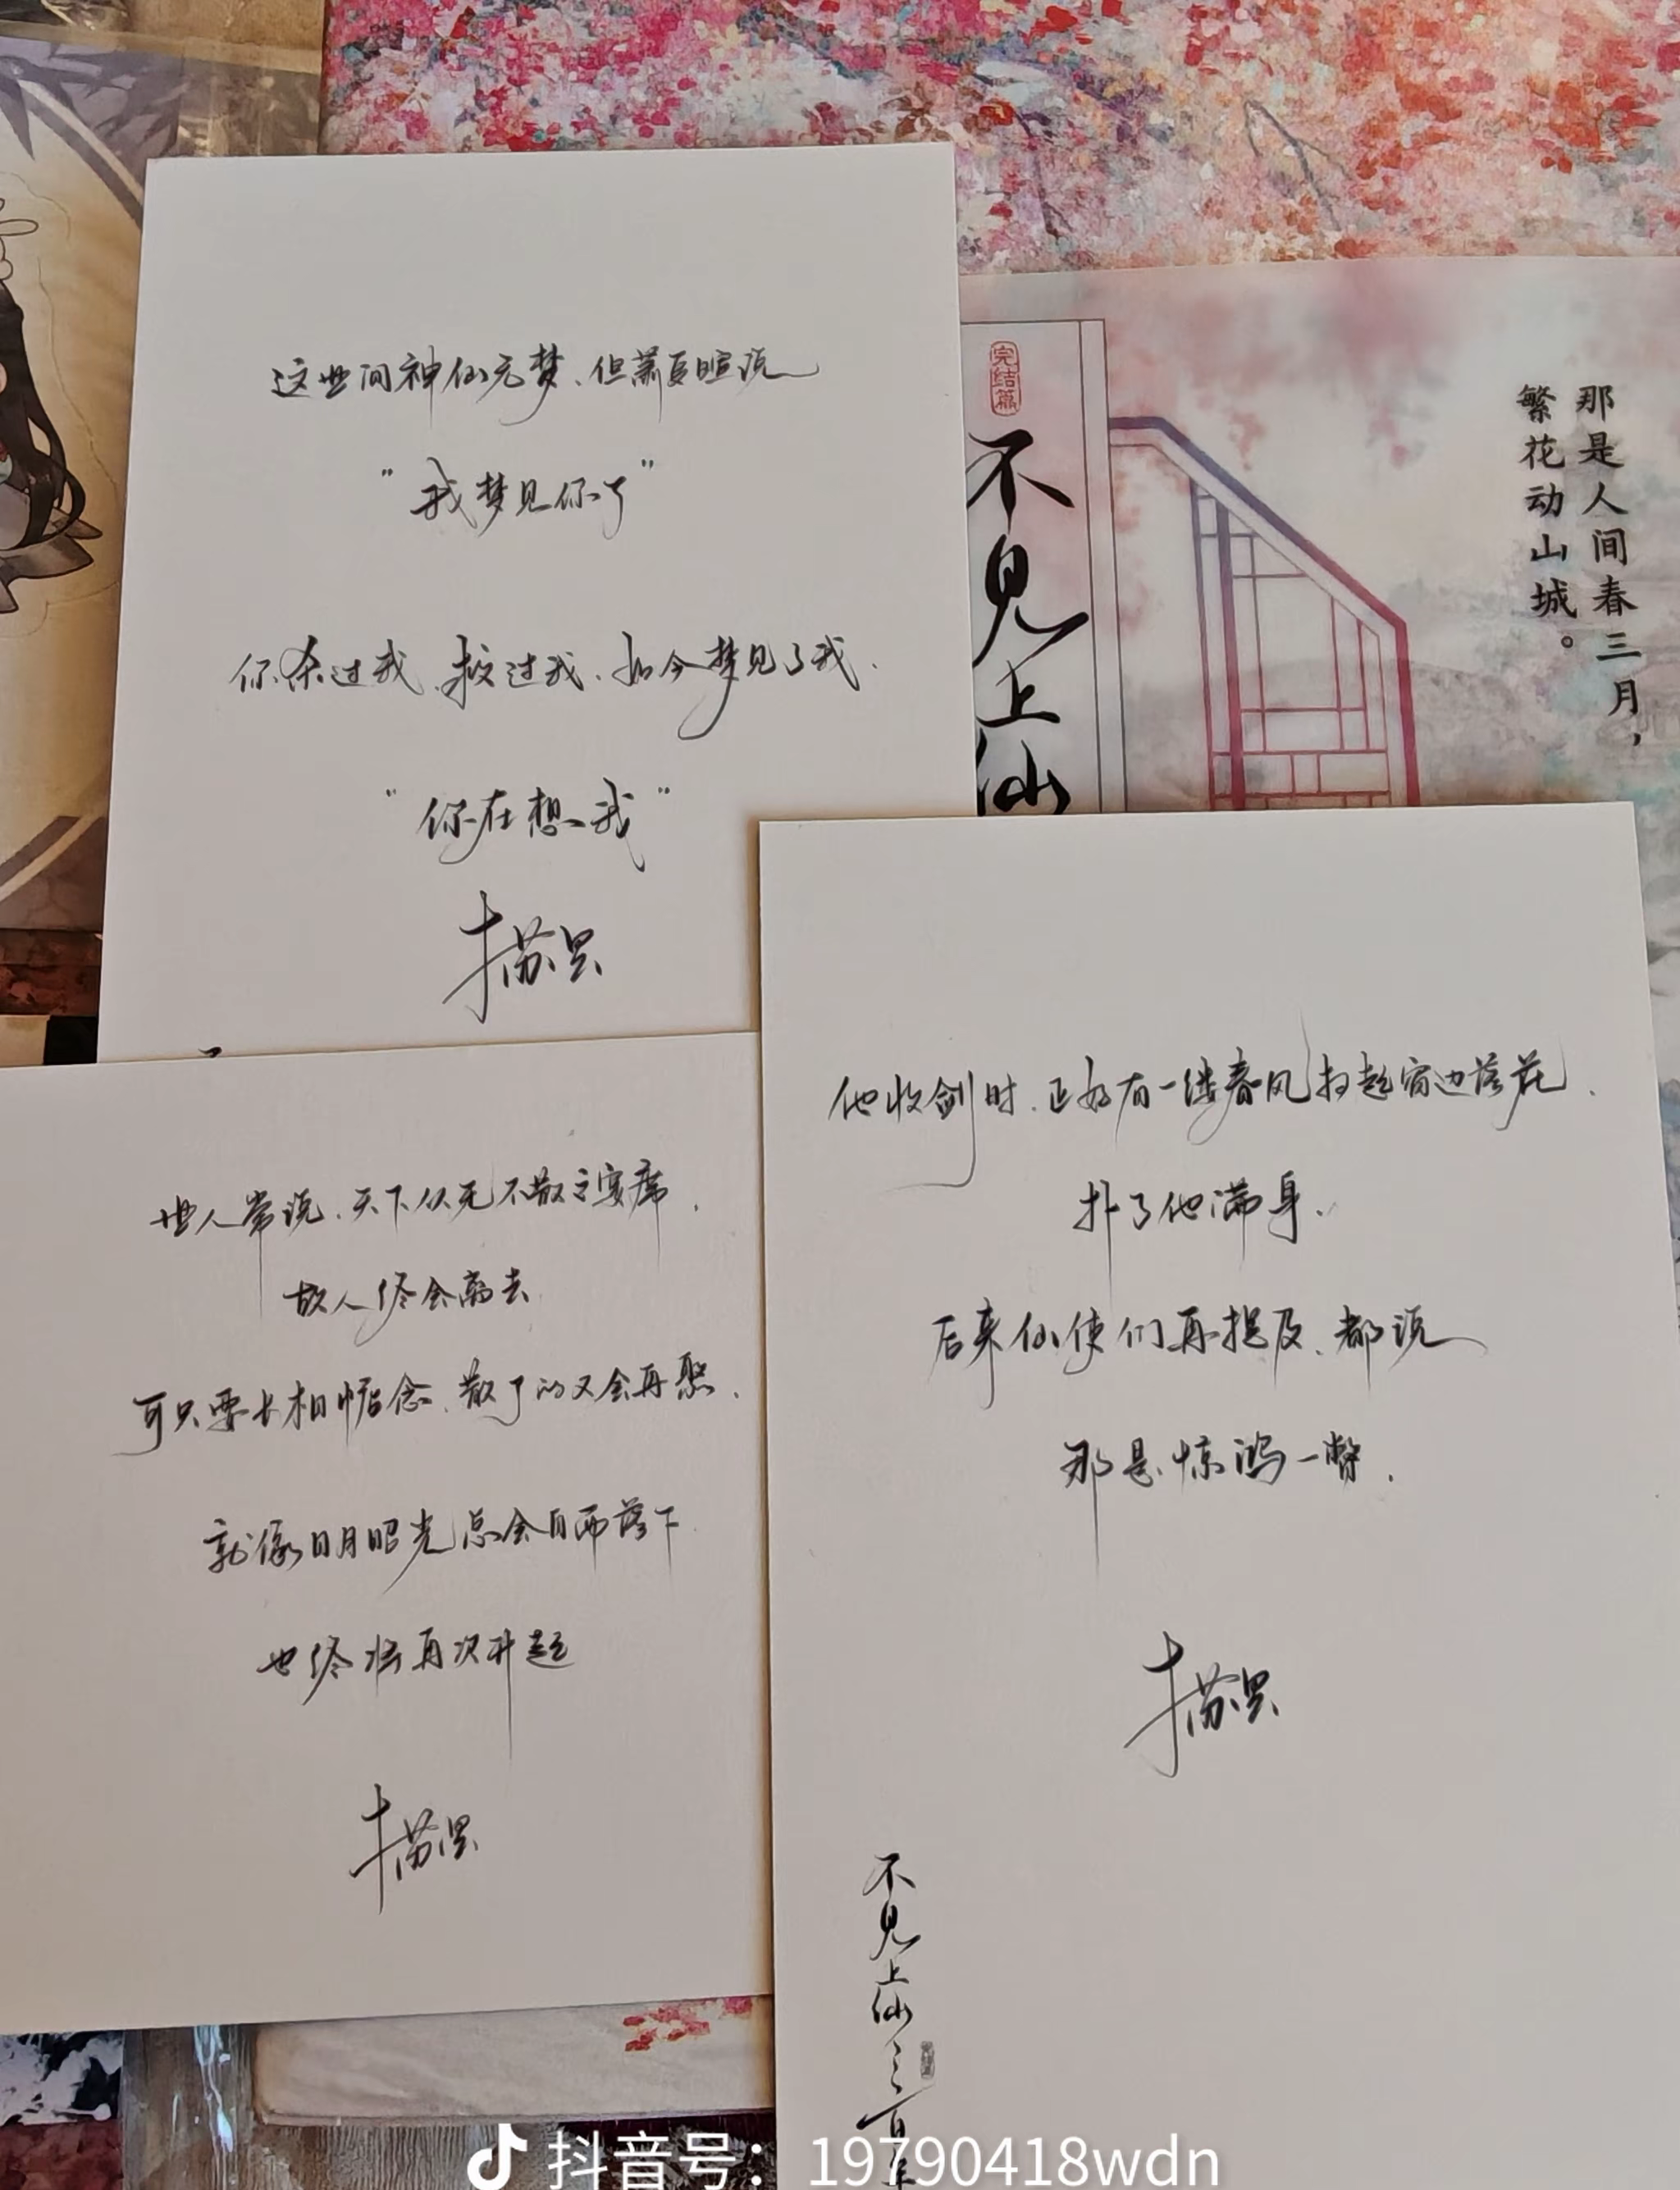 这世间神仙无梦、但萧复暄说
"我梦见你了"
你杀过我、救过我、如今梦见了我.
"你在想我"
木苏里
完结篇
不见上仙
那是人间春三月，
繁花动山城。
世人常说、天下从无不散之宴席.
故人终会离去
可只要长相惦念、散了的又会再聚.
就像日月昭光总会自西落下
也终将再次升起
木苏里
他收剑时、正好有一缕春风扫起窗边落花.
扑了他满身.
后来仙使们再提及、都说
那是惊鸿一瞥.
木苏里
不见上仙三百年
抖音号：19790418wdn